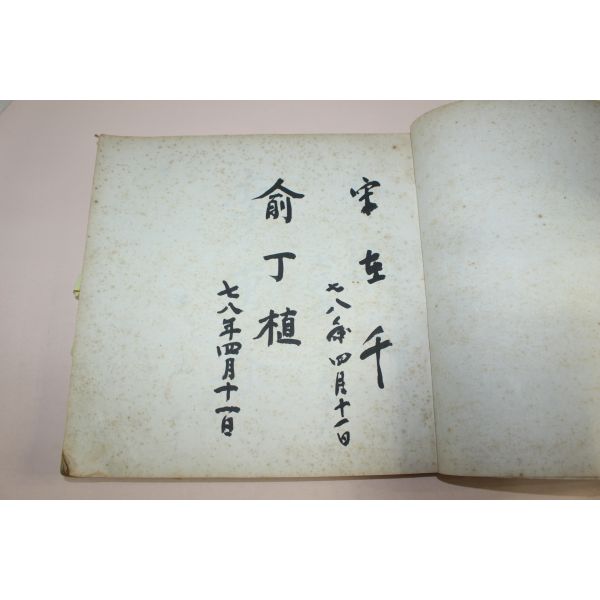 宋在千
七八年四月十一日
俞丁植
七八年四月十一日